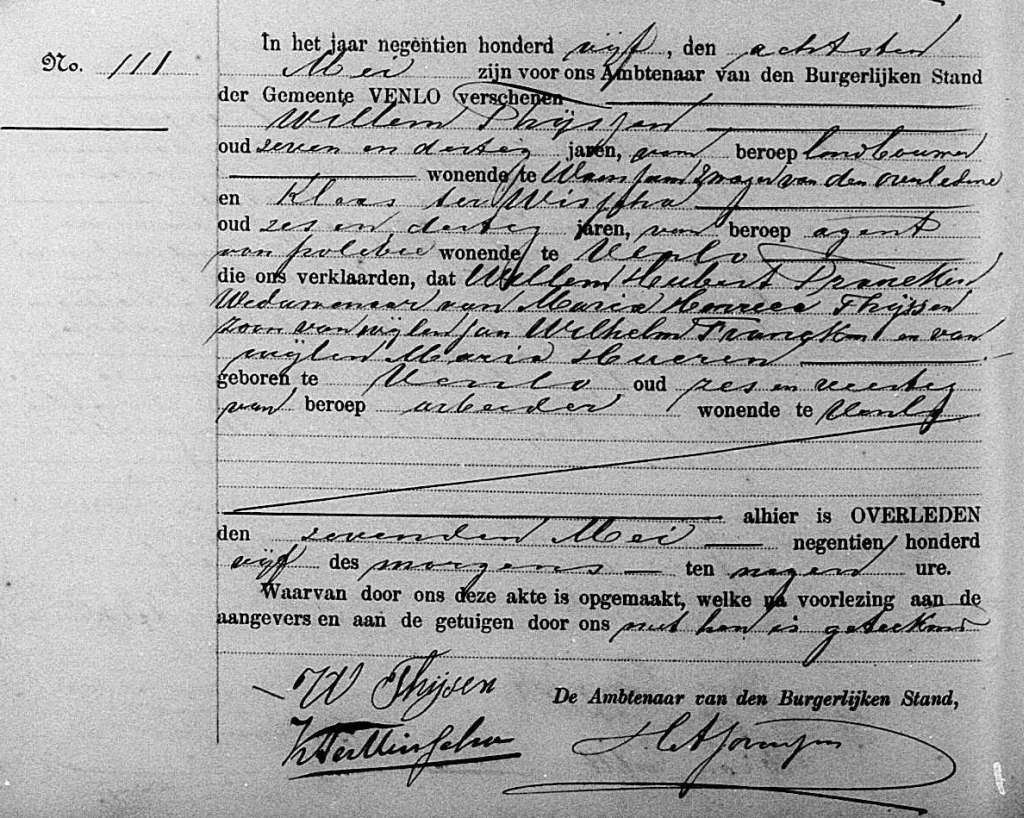 No. 111
In het jaar negentien honderd vijf, den achtsten
Mei zijn voor ons Ambtenaar van den Burgerlijken Stand
der Gemeente VENLO verschenen
Willem Thijssen
oud zeven en dertig jaren, van beroep landbouwer
wonende te zwager van den overledene
en Klaas ter
oud zes en dertig jaren, van beroep agent
van politie wonende te Venlo
die ons verklaarden, dat Willem Hubert Francken
Weduwenaar van Maria Thijssen
zoon van wijlen Jan Wilhelm Francken en van
wijlen Maria Hueren
geboren te Venlo oud zes en veertig
van beroep arbeider wonende te Venlo
alhier is OVERLEDEN
den zevenden Mei negentien honderd
vijf des morgens ten negen ure.
Waarvan door ons deze akte is opgemaakt, welke na voorlezing aan de
aangevers en aan de getuigen door ons met hen is geteekend
W Thijsen
De Ambtenaar van den Burgerlijken Stand,